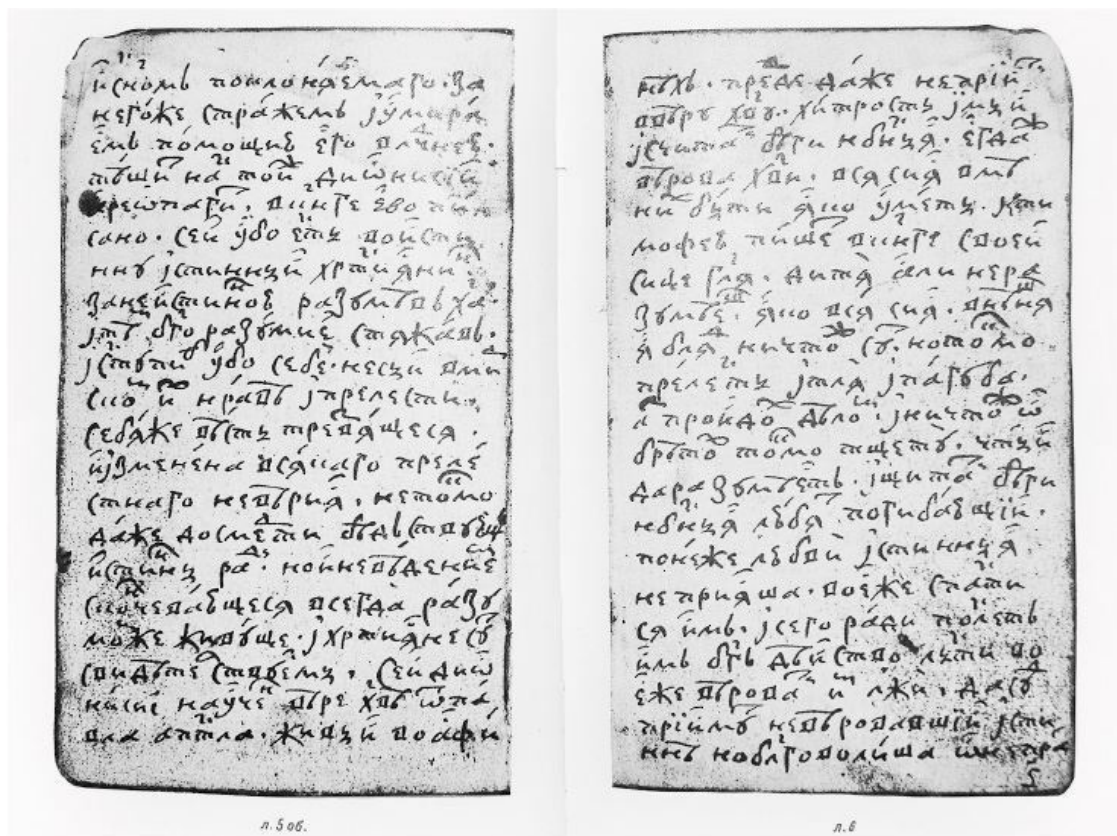 и҆ скоⷨ поклонѧ́емаго. За
него́же стра́жемъ і у҆мира́
емъ по́мощию єго̀ влⷣчнею.
тѣ́шиⷮ на тоⷤ, Дио҆ниси́й
Ареѡпагиⷮ, в книге ево пи́
сано. Сей у҆́бо єⷭть вои́сти
нну і́стинный хрⷭтия́ниⷩ.
Зане́ и́стиною разумѣ́въ Хаⷭ҇,
і тѣⷨ бг҃оразу́мие стяжавъ.
іступиⷡ у҆́бо себѐ не сый в миⷬ
скоⷨ иⷯ нра́вѣ і пре́лести,
себя́же вѣсть трезвя́щеся
и҆ ізменена вся́каго преле́
стнаго неверия̀, не тоⷦмо
да́же до смеⷬти бѣ́дъствующе
и҆́стинны раⷣ. но и҆ невѣ́дением
скоⷩчева́ющеся всегда̀ разу́
моⷨже живу́ще. і хрⷭтия́не суⷮ
свидѣтеⷧствуеми. Сей Диѡ
ни́сий нау́чеⷩ вѣ́ре Хⷭвѣ ѿ Па́
вла апⷭтла. Живы́й во А҆фи́
нѣхъ. преⷤде да́же не прїи҆тѝ
в вѣ́ру Хⷭву. хи́трость имы́й
ісчитаⷮ бѣ́ги нбⷭ҇ныя̀. Є҆гдаⷤ
вѣ́рова Хⷭви, вся сия̀ вмѣ
ни́ быти я҆́ко у҆ме́ты. К Ти
мофею пи́шеⷮ в книге своей
сице гл҃я. Дитя̀ али не ра
зумѣ́еⷲ, я҆́ко вся сия̀ внѣⷲня
я бляⷣ ничтоⷤ суⷮ. но тоⷦмо
пре́лесть і тля̀ і па́губа.
Аⷥ проидоⷯ дѣ́лоⷨ і ничтоⷤ ѡ
брѣтоⷯ тоⷦмо тщету̀. Чты́й
да разумѣ́етъ. ищитаⷮ бѣ́ги
нбⷭ҇ныя̀ лю́бяⷮ погиба́ющїи.
понеже любви̂ і́стинныя
не прия́ша. воеже спаⷭти
ся и҆мъ. і сего̀ ра́ди поⷭлетъ
и҆мъ бг҃ъ дѣ́йство льсти во
еже вѣ́роваⷮ иⷨ лжи̂. да суⷣ
прїи́муⷮ не вѣ́ровавшїи істи
ннѣ но блг҃оволи́ша ѡ҆ непра́
л. 5 об.
л. 6